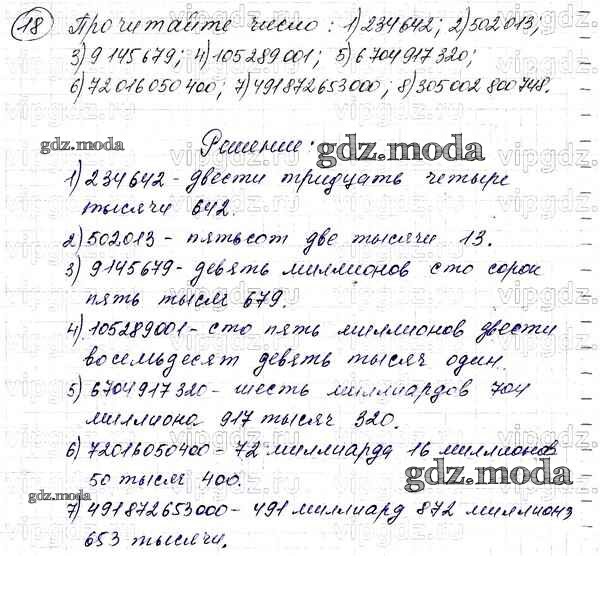 18 Прочитайте число: 1) 234642; 2) 502013;
3) 9145679; 4) 105289001; 5) 6704917320;
6) 72016050400; 7) 491872653000; 8) 305002800748.
gdz.moda
Решение:
gdz.moda
1) 234642 - двести тридцать четыре
тысячи 642.
2) 502013 - пятьсот две тысячи 13.
3) 9145679 - девять миллионов сто сорок
пять тысяч 679.
4) 105289001 - сто пять миллионов двести
восемьдесят девять тысяч один.
5) 6704917320 - шесть миллиардов 704
миллиона 917 тысяч 320.
6) 72016050400 - 72 миллиарда 16 миллионов
50 тысяч 400.
gdz.moda
gdz.moda
7) 491872653000 - 491 миллиард 872 миллиона
653 тысячи.